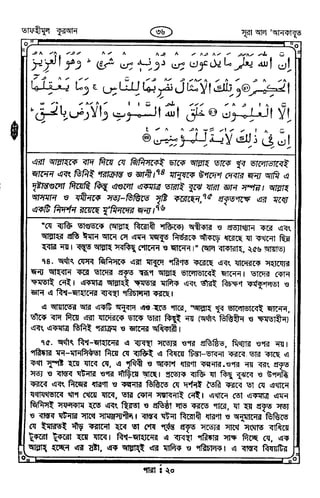 তাফহীমুল কুরআন
৩৬
সূরা আল 'আনকাবূত
إِنَّ اللَّهَ يَعْلَمُ مَا يَدْعُونَ مِنْ دُونِهِ مِنْ شَيْءٍ ۚ وَهُوَ الْعَزِيزُ
الْحَكِيمُ ۝ وَتِلْكَ الْأَمْثَالُ نَضْرِبُهَا لِلنَّاسِ ۚ وَمَا يَعْقِلُهَا
إِلَّا الْعَالِمُونَ ۝ خَلَقَ اللَّهُ السَّمَوَاتِ وَالْأَرْضَ بِالْحَقِّ ۚ
إِنَّ فِي ذَلِكَ لَآيَةً لِلْمُؤْمِنِينَ ۝
এরা আল্লাহকে বাদ দিয়ে যে জিনিসকেই ডাকে আল্লাহ তাকে খুব ভালোভাবেই
জানেন এবং তিনিই পরাক্রান্ত ও জ্ঞানী।৭৪ মানুষকে উপদেশ দেবার জন্য আমি এ
দৃষ্টান্তগুলো দিয়েছি কিন্তু এগুলো একমাত্র তারাই বুঝে যারা জ্ঞান সম্পন্ন। আল্লাহ
আসমান ও যমীনকে সত্য-ভিত্তিতে সৃষ্টি করেছেন,৭৫ প্রকৃতপক্ষে এর মধ্যে
একটি নিদর্শন রয়েছে মু'মিনদের জন্য।৭৬
"যে ব্যক্তি তাগুতকে (আল্লাহ বিরোধী শক্তিকে) অস্বীকার ও প্রত্যাখ্যান করে এবং
আল্লাহর প্রতি ঈমান আনে সে এমন মজবুত নির্ভরকে আঁকড়ে ধরেছে যা কখনো ছিন্ন
হবার নয়। বস্তুত আল্লাহ সবকিছু শোনেন ও জানেন।" (আল বাকারাহ, ২৫৬ আয়াত)
৭৪. অর্থাৎ যেসব জিনিসকে এরা মাবুদে পরিণত করেছে এবং যাদেরকে সাহায্যের
জন্য আহবান করে তাদের প্রকৃত স্বরূপ আল্লাহ ভালোভাবেই জানেন। তাদের কোন
ক্ষমতাই নেই। একমাত্র আল্লাহই ক্ষমতার মালিক এবং তাঁরই বিচক্ষণ কর্মকুশলতা ও
জ্ঞান এ বিশ্ব-জাহানের ব্যবস্থা পরিচালনা করছে।
এ আয়াতের আর একটি অনুবাদ এও হতে পারে, "আল্লাহ খুব ভালোভাবেই জানেন,
তাঁকে বাদ দিয়ে এরা যাদেরকে ডাকে তারা কিছুই নয় (অর্থাৎ ভিত্তিহীন ও ক্ষমতাহীন)
এবং একমাত্র তিনিই পরাক্রম ও জ্ঞানের অধিকারী।
৭৫. অর্থাৎ বিশ্ব-জাহানের এ ব্যবস্থা সত্যের ওপর প্রতিষ্ঠিত, মিথ্যার ওপর নয়।
পরিষ্কার মন-মানসিকতা নিয়ে যে ব্যক্তিই এ বিষয়ে চিন্তা-ভাবনা করবে তার কাছে এ
কথা সুস্পষ্ট হয়ে যাবে যে, এ পৃথিবী ও আকাশ ধারণা কল্পনার ওপর নয় বরং প্রকৃত
সত্য ও বাস্তব ঘটনার ওপর দাঁড়িয়ে আছে। প্রত্যেক ব্যক্তি যা কিছু বুঝবে ও উপলব্ধি
করবে এবং নিজের ধারণা ও কল্পনার ভিত্তিতে যে দর্শনই তৈরি করবে তা যে এখানে
যথাযথভাবে খাপ খেয়ে যাবে, তার কোন সম্ভাবনাই নেই। এখানে তো একমাত্র এমন
জিনিসই সফলকাম হতে এবং স্থিরতা ও প্রতিষ্ঠা লাভ করতে পারে, যা হয় প্রকৃত সত্য
ও বাস্তব ঘটনার সাথে সামঞ্জস্যশীল। বাস্তব ঘটনা বিরোধী ধারণা ও অনুমানের ভিত্তিতে
যে ইমারতই দাঁড় করানো হবে তা শেষ পর্যন্ত প্রকৃত সত্যের সাথে সংঘাত বাধিয়ে
টুকরো টুকরো হয়ে যাবে। বিশ্ব-জাহানের এ ব্যবস্থা পরিষ্কার সাক্ষ দিচ্ছে যে, এক
আল্লাহ হচ্ছেন এর স্রষ্টা, এক আল্লাহই এর মালিক ও পরিচালক। এ বাস্তব বিষয়টির
পারা : ২০